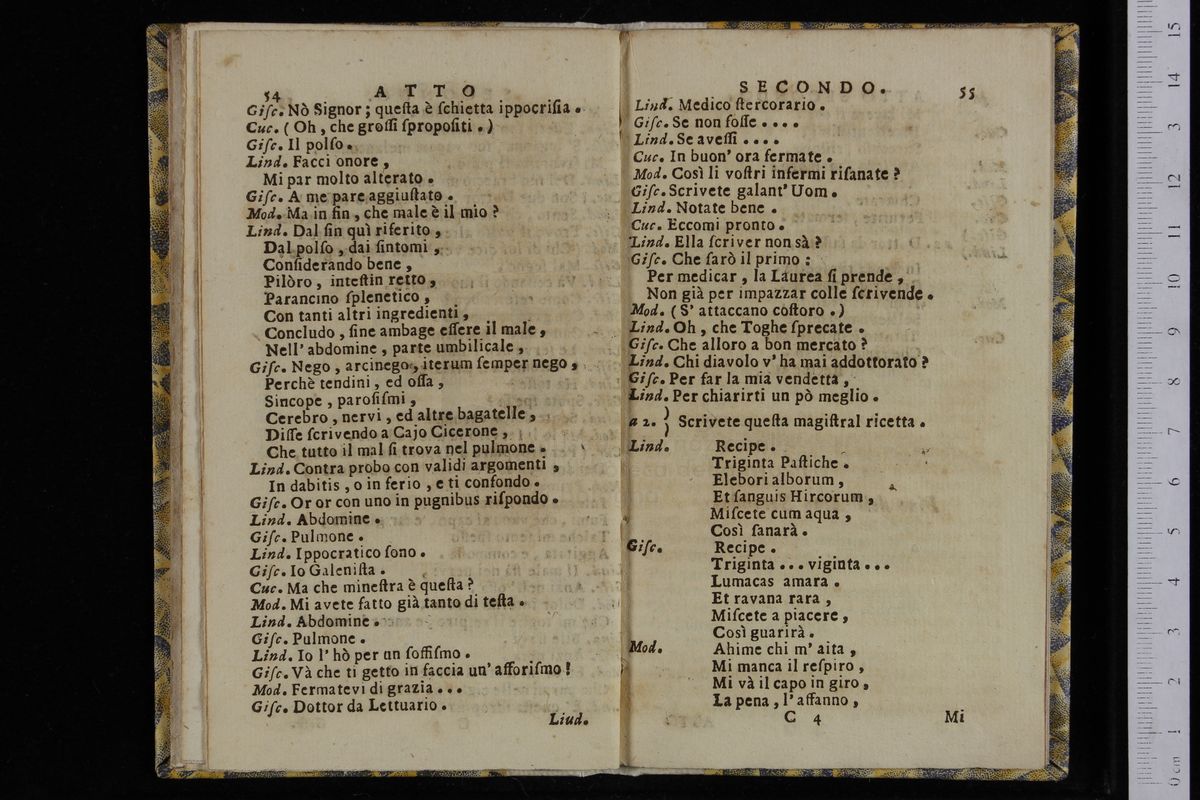 54
ATTO
Giſc. Nò Signor; queſta è ſchietta ippocriſia.
Cuc. (Oh, che groſſi ſpropoſiti.)
Giſc. Il polſo.
Lind. Facci onore,
Mi par molto alterato.
Giſc. A me pare aggiuſtato.
Mod. Ma in fin, che male è il mio?
Lind. Dal fin quì riferito,
Dal polſo, dai ſintomi,
Conſiderando bene,
Pilòro, inteſtin retto,
Parancino ſplenetico,
Con tanti altri ingredienti,
Concludo, ſine ambage eſſere il male,
Nell' abdomine, parte umbilicale,
Giſc. Nego, arcinego, iterum ſemper nego,
Perchè tendini, ed oſſa,
Sincope, paroſiſmi,
Cerebro, nervi, ed altre bagatelle,
Diſſe ſcrivendo a Cajo Cicerone,
Che tutto il mal ſi trova nel pulmone.
Lind. Contra probo con validi argomenti,
In dabitis, o in ferio, e ti confondo.
Giſc. Or or con uno in pugnibus riſpondo.
Lind. Abdomine.
Giſc. Pulmone.
Lind. Ippocratico ſono.
Giſc. Io Galeniſta.
Cuc. Ma che mineſtra è queſta?
Mod. Mi avete fatto già tanto di teſta.
Lind. Abdomine.
Giſc. Pulmone.
Lind. Io l' hò per un ſoffiſmo.
Giſc. Và che ti getto in faccia un' afforiſmo!
Mod. Fermatevi di grazia...
Giſc. Dottor da Lettuario.
Liud.
SECONDO.
55
Lind. Medico ſtercorario.
Giſc. Se non foſſe....
Lind. Se aveſſi....
Cuc. In buon' ora fermate.
Mod. Così li voſtri infermi riſanate?
Giſc. Scrivete galant' Uom.
Lind. Notate bene.
Cuc. Eccomi pronto.
Lind. Ella ſcriver non sà?
Giſc. Che ſarò il primo:
Per medicar, la Laurea ſi prende,
Non già per impazzar colle ſcrivende.
Mod. (S' attaccano coſtoro.)
Lind. Oh, che Toghe ſprecate.
Giſc. Che alloro a bon mercato?
Lind. Chi diavolo v' ha mai addottorato?
Giſc. Per far la mia vendetta,
Lind. Per chiarirti un pò meglio.
a 2. ) Scrivete queſta magiſtral ricetta.
Lind. Recipe.
Triginta Paſtiche.
Elebori alborum,
Et ſanguis Hircorum,
Miſcete cum aqua,
Così ſanarà.
Giſc. Recipe.
Triginta... viginta...
Lumacas amara.
Et ravana rara,
Miſcete a piacere,
Così guarirà.
Mod. Ahime chi m' aita,
Mi manca il reſpiro,
Mi và il capo in giro,
La pena, l' affanno,
C 4
Mi
0 cm 1 2 3 4 5 6 7 8 9 10 11 12 13 14 15